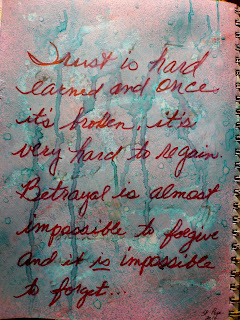 Trust is hard
earned and once
it's broken, it's
very hard to regain.
Betrayal is almost
impossible to forgive
and it is impossible
to forget...